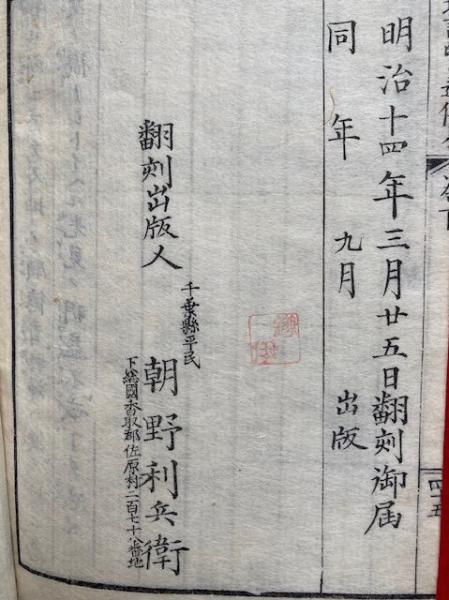 明治十四年三月廿五日翻刻御届
同年九月出版
翻刻出版人
千葉縣平民
朝野利兵衛
下總國香取郡佐原村二百七十八番地
四十五